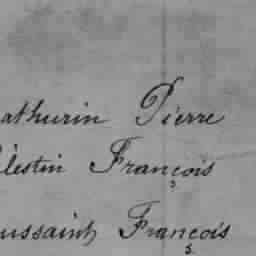 athurin Pierre
élestin François
oussaint François